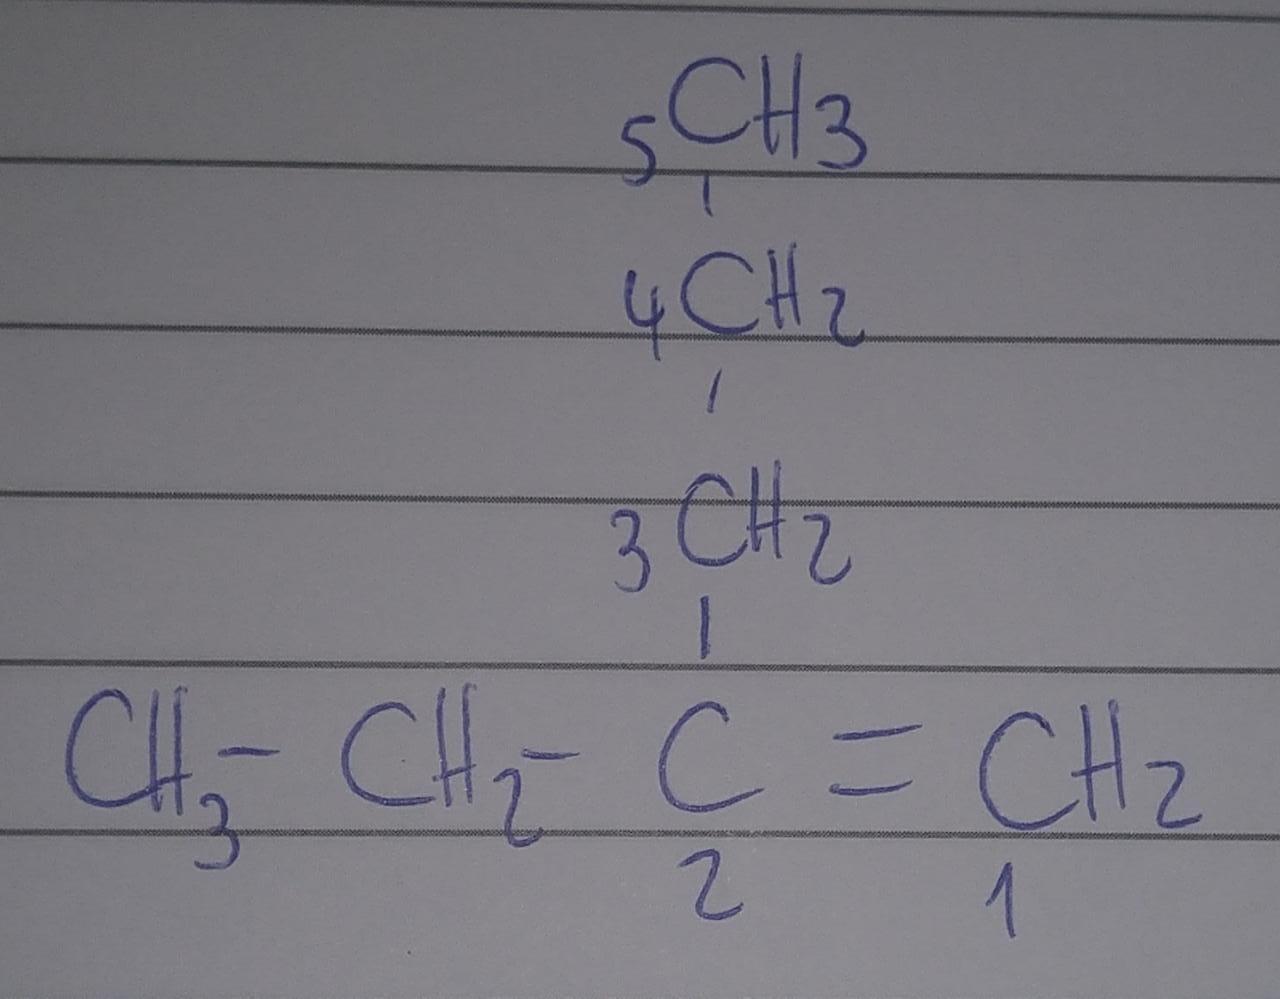 5CH3
4CH2
3CH2
CH3-CH2-C=CH2
2 1